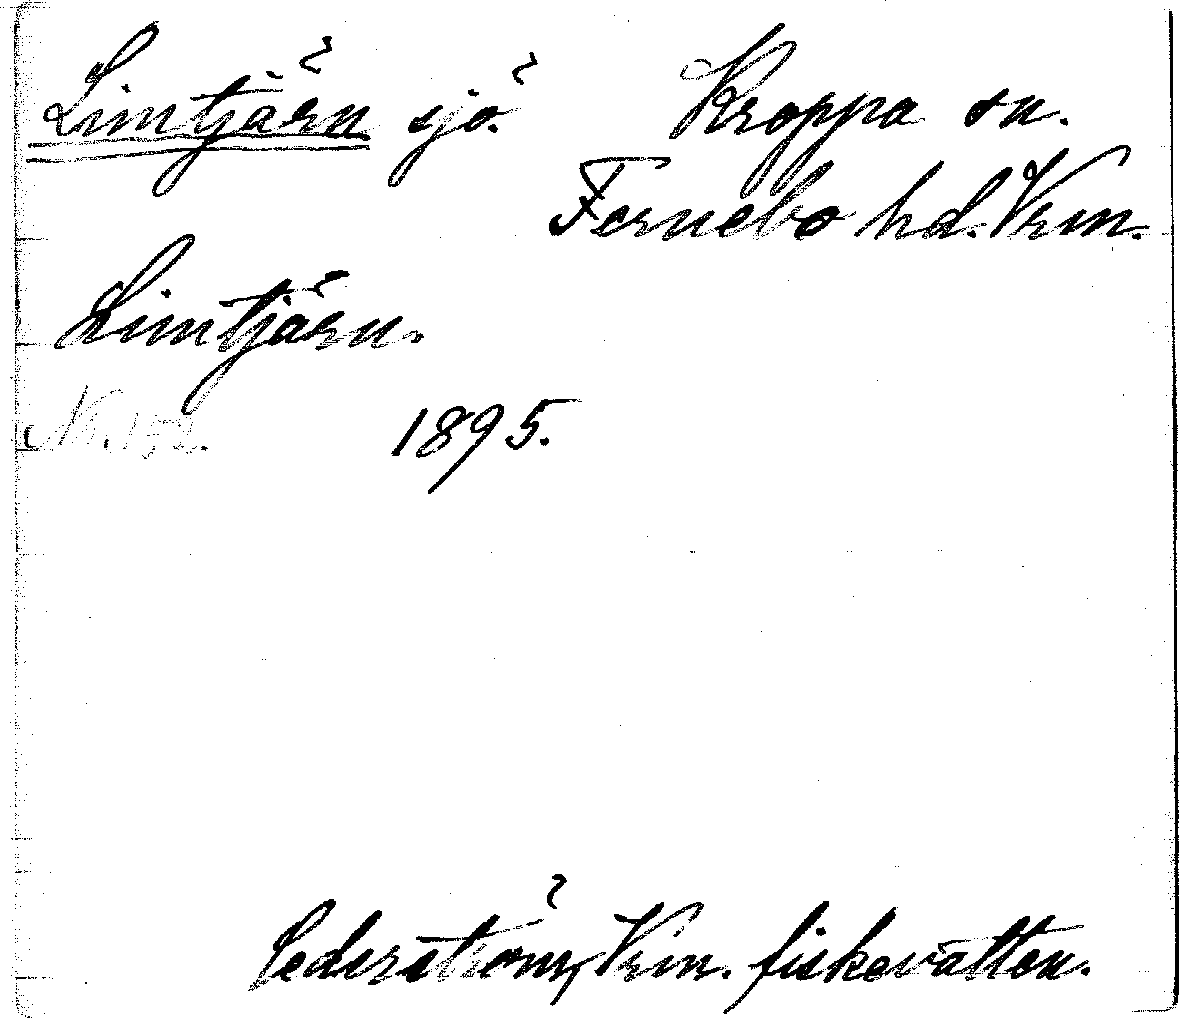 Limtjärn sjö. Kroppa sn.
Fernebo hd. Vrm.
Limtjärn.
Nr. 152. 1895.
Cederström, Vrm. fiskevatten.